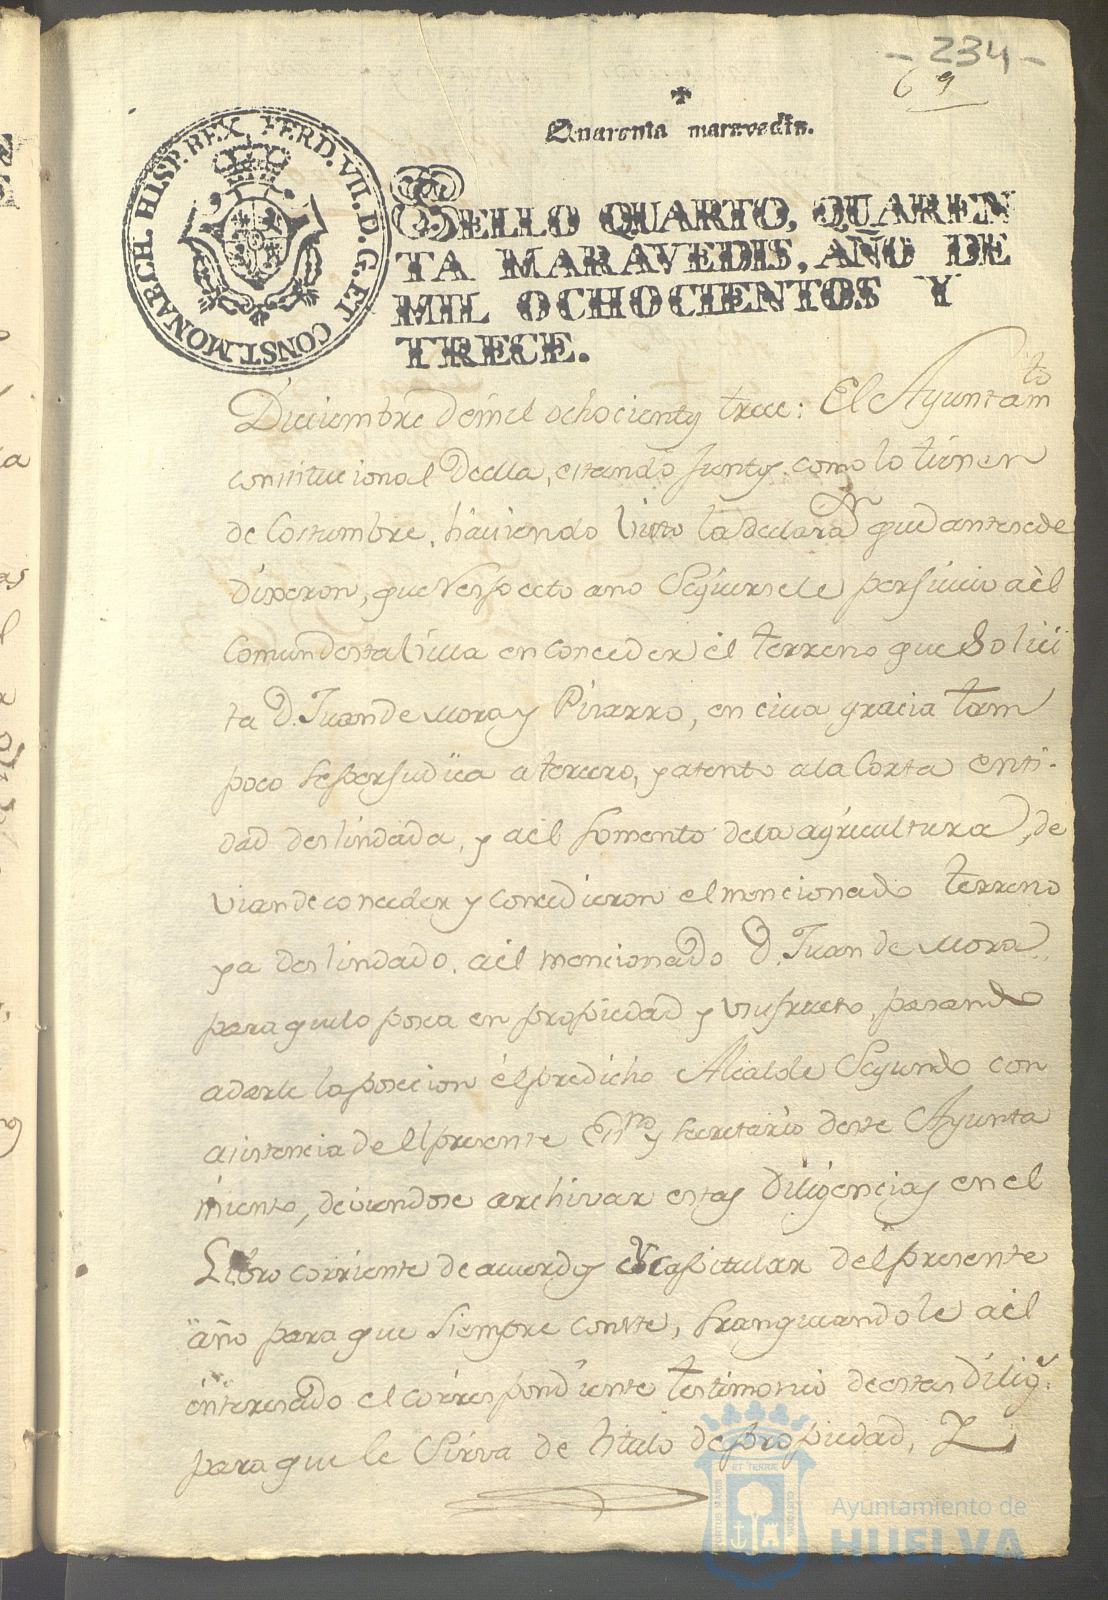 - 234 -
6 9
Quarenta maravedis.
HISP. REX, FERD. VII. D. G. ET CONST. MONARCH.
SELLO QUARTO, QUAREN
TA MARAVEDIS, AÑO DE
MIL OCHOCIENTOS Y
TRECE.
Diciembre demil ochocientos trece: El Ayuntam.to
constitucional deella, estando Juntos, como lo tienen
de Costumbre, haviendo Visto la declara.n que antesede
dixeron, que Respecto ano Seguirsele persuicio aèl
Comun destaVilla en conceder el terreno que Solici
ta D. Juan de Mora y Pizarro, en cuia gracia tam
poco seperjudica a tercero, y atento ala Corta enti-
dad deslindada, y aèl fomento dela agricultura, de
vian de conceder y concedieron el mencionado terreno
ya deslindado, aèl mencionado D. Juan de Mora,
para quelo posea en propiedad y usufructo, pasando
adarle la posecion èl predicho Alcalde Segundo con
asistencia de èl presente Ess.no y secretario deste Ayunta
miento, deviendose archivar estas diligencias en el
Libro corriente de acuerdos capitular del presente
año para que siempre conste, franqueandole aèl
interesado el correspondiente testimonio de estas dilig.s
para que le Sirva de titulo de propiedad,
PORTUS MARIS ET TERRAE CUSTODIA
Ayuntamiento de
HUELVA